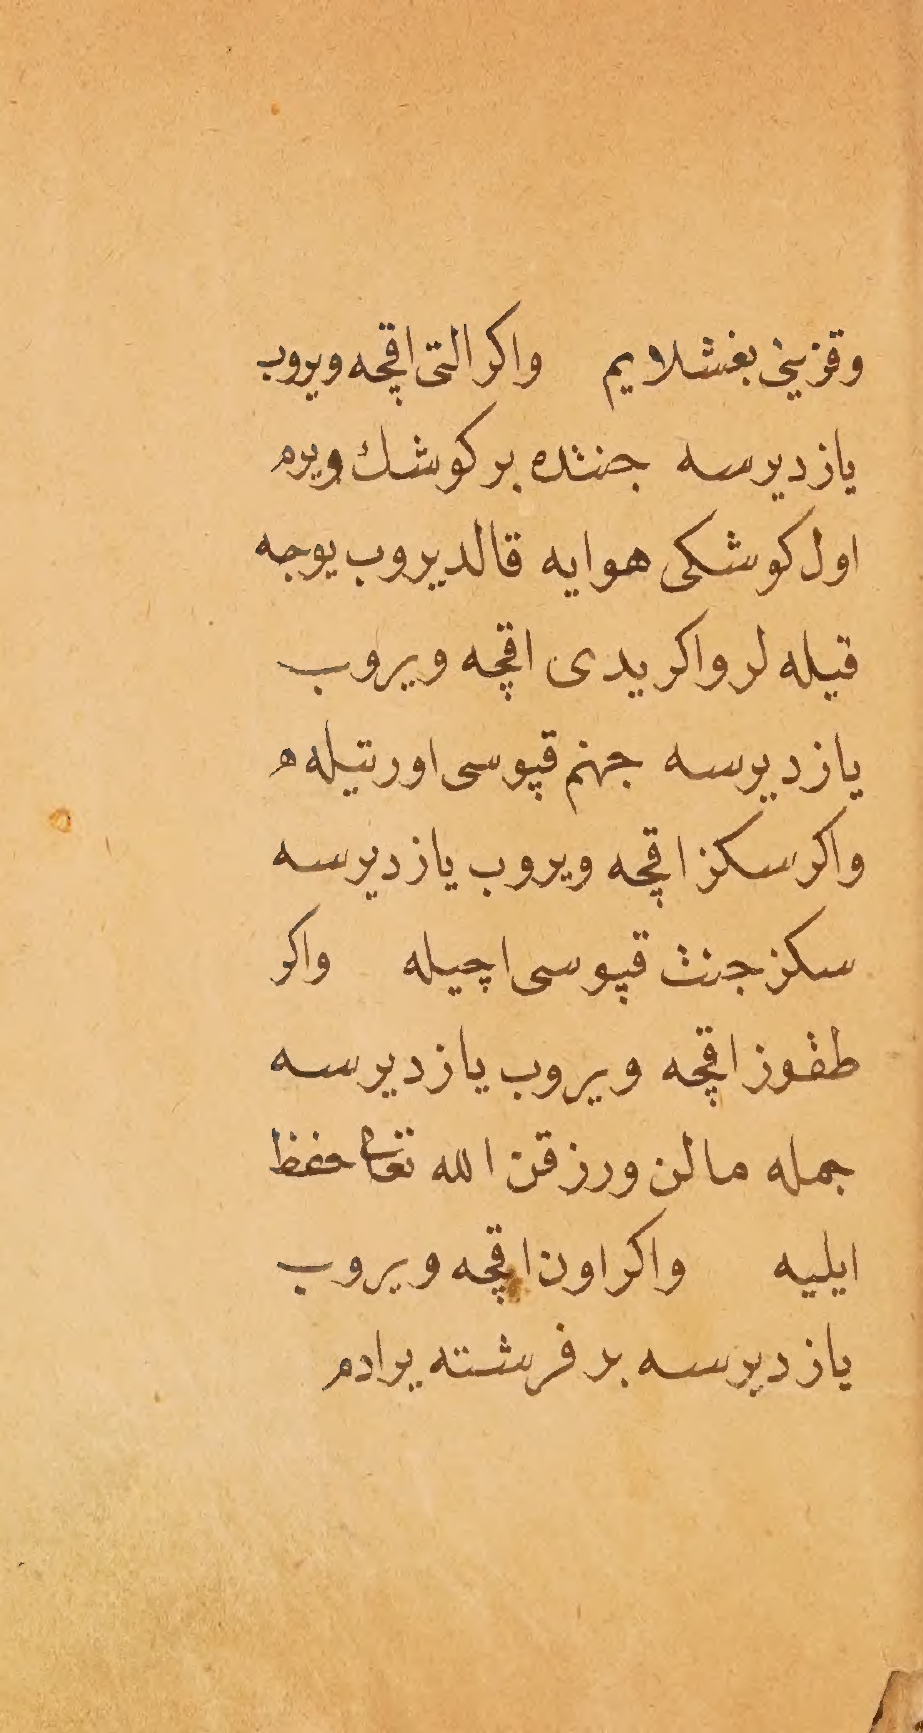 وقزيني بغشلايم واكر التى اقچه ويروب
يازديرسه جنتده بر كوشك ويرم
اول كوشكى هوايه قالديروب يوجه
قيله لر واكر يدى اقچه ويروب
يازديرسه جهنم قپوسى اورتيله م
واكر سكز اقچه ويروب يازديرسه
سكز جنت قپوسى اچيله واكر
طقوز اقچه ويروب يازديرسه
جمله مالن ورزقن الله تعالى حفظ
ايليه واكر اون اقچه ويروب
يازديرسه بر فرشته يرادم